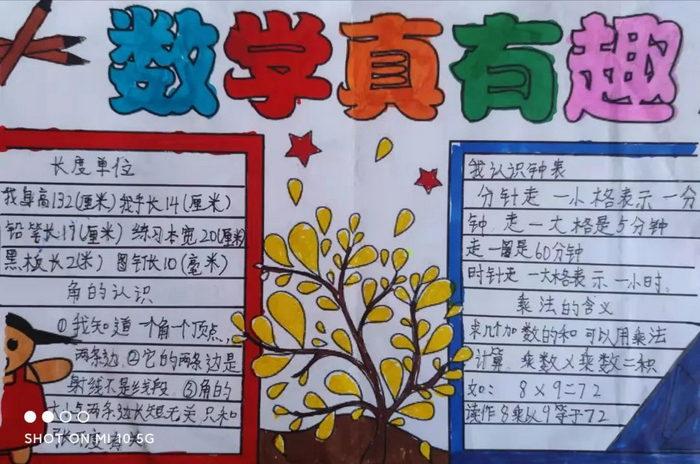 数学真有趣
长度单位
我身高132(厘米) 我手长14(厘米)
铅笔长17(厘米) 练习本宽20(厘米)
黑板长2(米) 图钉长10(毫米)
角的认识
①我知道一个角一个顶点,
两条边,②它的两条边是
射线不是线段,③角的
大小与两条边长短无关 只和
我认识钟表
分针走一小格表示一分
钟,走一大格是5分钟
走一圈是60分钟
时针走一大格表示一小时,
乘法的含义
求几个加数的和 可以用乘法
计算,乘数×乘数=积
如: 8×9=72
读作8乘以9等于72
SHOT ON MI 10 5G